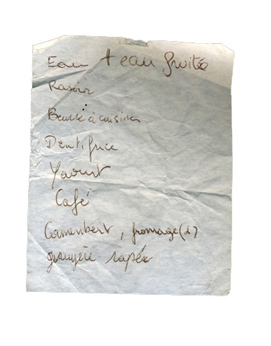 Eau + eau fruitée
Rasoir
Beurre à cuisiner
Dentifrice
Yaourt
Café
Camembert, fromage (
gruyère rapée